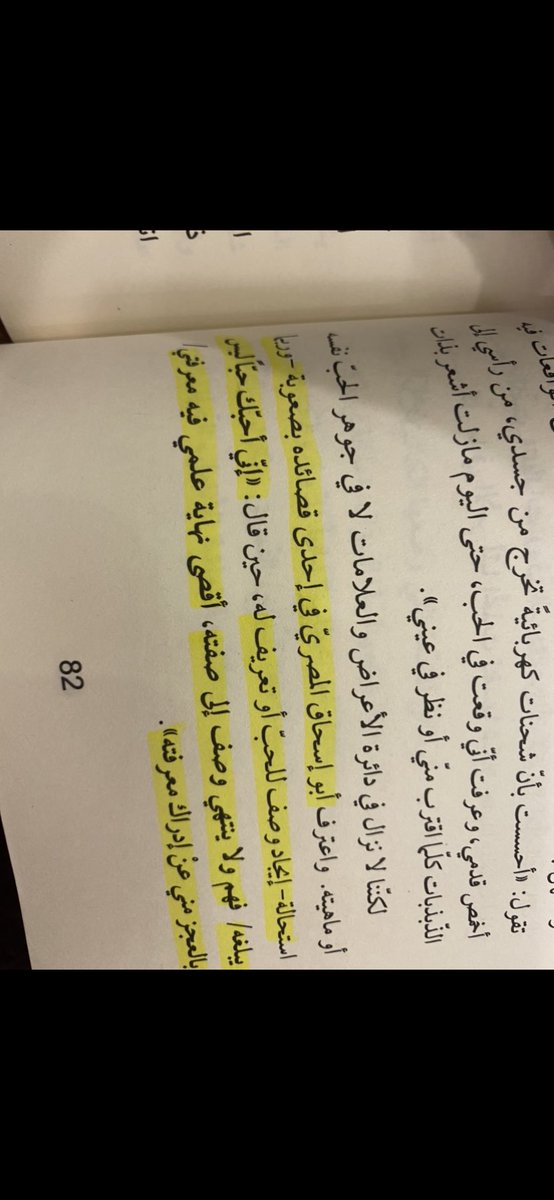 تقول: «أحسست بأنّ شحنات كهربائيةً تخرج من جسدي، من رأسي إلى
أخمص قدمي، وعرفت أنّي وقعت في الحب، حتى اليوم مازلت أشعر بذات
الذّبذبات كلّما اقترب منّي أو نظر في عيني».
لكنّنا لا نزال في دائرة الأعراض والعلامات لا في جوهر الحبّ نفسه
أو ماهيته. واعترف أبو إسحاق المصريّ في إحدى قصائده بصعوبة -وربما
استحالة- إيجاد وصف للحبّ أو تعريف له، حين قال: «إنّي أحبّك حبّاً ليس
يبلغه/ فهم ولا ينتهي وصف إلى صفته، أقصى نهاية علمي فيه معرفتي/
بالعجز مني عنْ إدراك معرفته».
82